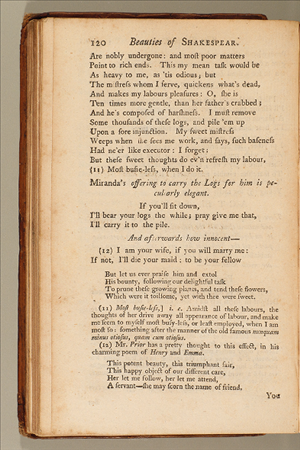 120 Beauties of SHAKESPEAR.
Are nobly undergone: and moſt poor matters
Point to rich ends. This my mean taſk would be
As heavy to me, as 'tis odious; but
The miſtreſs whom I ſerve, quickens what's dead,
And makes my labours pleaſures: O, ſhe is
Ten times more gentle, than her father's crabbed;
And he's compoſed of harſhneſs. I muſt remove
Some thouſands of theſe logs, and pile 'em up
Upon a ſore injunction. My ſweet miſtreſs
Weeps when ſhe ſees me work, and ſays, ſuch baſeneſs
Had ne'er like executor: I forget;
But theſe ſweet thoughts do ev'n refreſh my labour,
(11) Moſt buſie-leſs, when I do it.
Miranda's offering to carry the Logs for him is pe-
culiarly elegant.
If you'll ſit down,
I'll bear your logs the while; pray give me that,
I'll carry it to the pile.
And afterwards how innocent—
(12) I am your wife, if you will marry me:
If not, I'll die your maid: to be your fellow
But let us ever praiſe him and extol
His bounty, following our delightful taſk
To prune theſe growing plants, and tend theſe flowers,
Which were it toilſome, yet with thee were ſweet.
(11) Moſt buſie-leſs,] i. e. Amidſt all theſe labours, the
thoughts of her drive away all appearance of labour, and make
me ſeem to myſelf moſt buſy-leſs, or leaſt employed, when I am
moſt ſo: ſomething after the manner of the old famous nunquam
minus otioſus, quam cum otioſus.
(12) Mr. Prior has a pretty thought to this effect, in his
charming poem of Henry and Emma.
This potent beauty, this triumphant fair,
This happy object of our different care,
Her let me follow, her let me attend,
A ſervant—ſhe may ſcorn the name of friend.
You